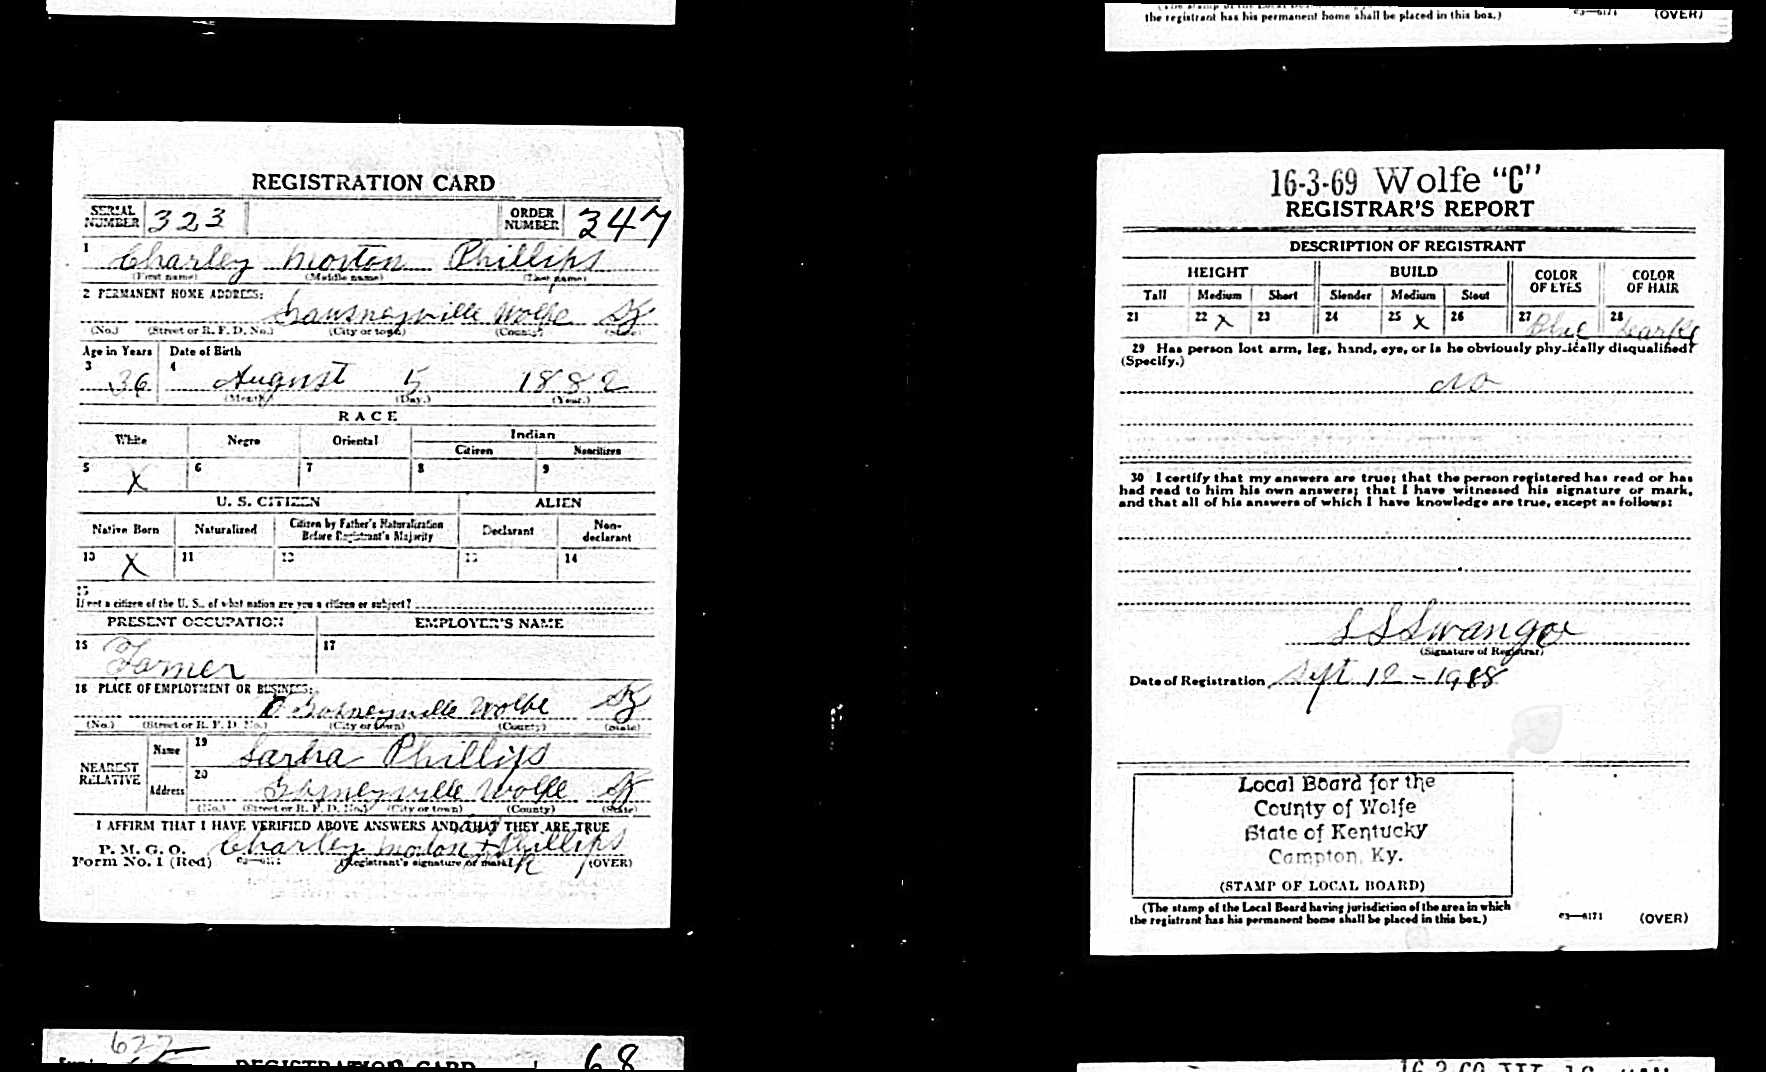 the registrant has his permanent home shall be placed in this box.) 03—6171 (OVER)
REGISTRATION CARD
SERIAL NUMBER 323 ORDER NUMBER 347
1 Charley Morton Phillips
(First name) (Middle name) (Last name)
2 PERMANENT HOME ADDRESS:
Wolfe Ky
(No.) (Street or R. F. D. No.) (City or town) (County) (State)
Age in Years Date of Birth
3 36 4 August 5 1882
(Month.) (Day.) (Year.)
RACE
White Negro Oriental Indian
Citizen Noncitizen
5 X 6 7 8 9
U. S. CITIZEN ALIEN
Native Born Naturalized Citizen by Father's Naturalization Before Registrant's Majority Declarant Non-declarant
10 X 11 12 13 14
15
If not a citizen of the U. S., of what nation are you a citizen or subject?
PRESENT OCCUPATION EMPLOYER'S NAME
16 Farmer 17
18 PLACE OF EMPLOYMENT OR BUSINESS:
Wolfe Ky
(No.) (Street or R. F. D. No.) (City or town) (County) (State)
NEAREST RELATIVE
Name 19 Sarha Phillips
Address 20 Wolfe Ky
(No.) (Street or R. F. D. No.) (City or town) (County) (State)
I AFFIRM THAT I HAVE VERIFIED ABOVE ANSWERS AND THAT THEY ARE TRUE
P. M. G. O. Charley Morton X Phillips
Form No. 1 (Red) (Registrant's signature or mark) (OVER)
REGISTRATION CARD 68
16-3-69 Wolfe "C"
REGISTRAR'S REPORT
DESCRIPTION OF REGISTRANT
HEIGHT BUILD COLOR OF EYES COLOR OF HAIR
Tall Medium Short Slender Medium Stout
21 22 X 23 24 25 X 26 27 Blue 28
29 Has person lost arm, leg, hand, eye, or is he obviously physically disqualified?
(Specify.)
No
30 I certify that my answers are true; that the person registered has read or has
had read to him his own answers; that I have witnessed his signature or mark,
and that all of his answers of which I have knowledge are true, except as follows:
S S Swango
(Signature of Registrar)
Date of Registration Sept 12-1918
Local Board for the
County of Wolfe
State of Kentucky
Campton, Ky.
(STAMP OF LOCAL BOARD)
(The stamp of the Local Board having jurisdiction of the area in which
the registrant has his permanent home shall be placed in this box.) 03—6171 (OVER)